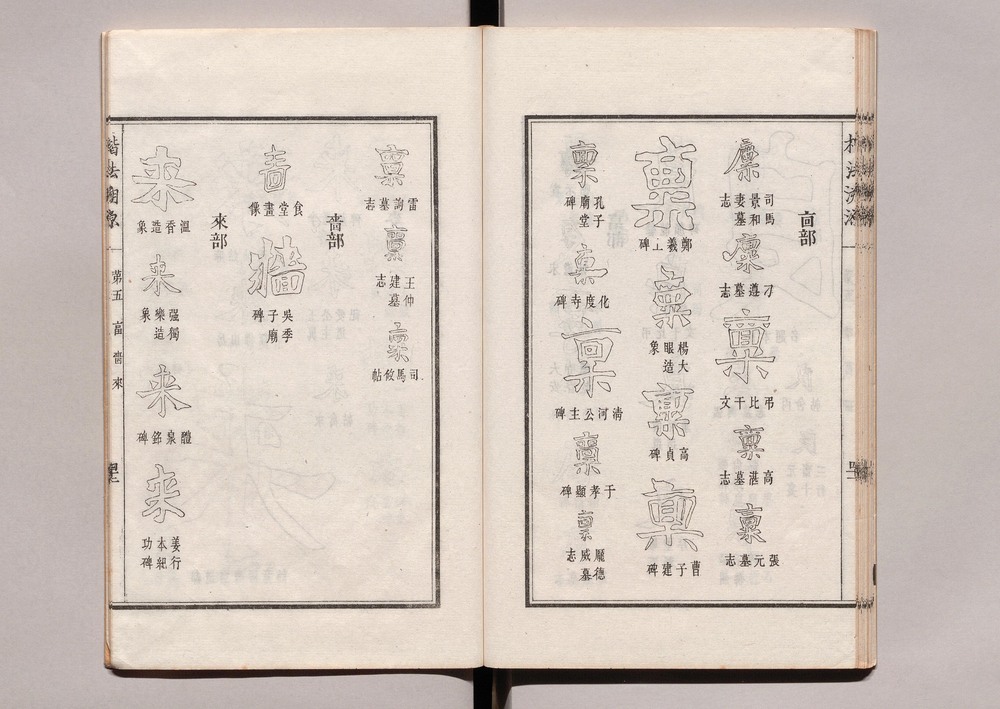 㐭部
稟
司馬景和妻墓志
稟
刁遵墓志
稟
弔比干文
稟
高湛墓志
稟
張元墓志
稟
鄭羲上碑
稟
楊大眼造象
稟
高貞碑
稟
曹子建碑
稟
孔子廟堂碑
稟
化度寺碑
稟
清河公主碑
稟
于孝顯碑
稟
龐德威墓志
稟
雷詢墓志
稟
王仲建墓志
稟
司馬攸帖
嗇部
嗇
食堂畫像
牆
吳季子廟碑
來部
来
溫香造象
来
强獨樂造象
来
醴泉銘碑
來
姜行本紀功碑
楷法溯源
第五
㐭
嗇
來